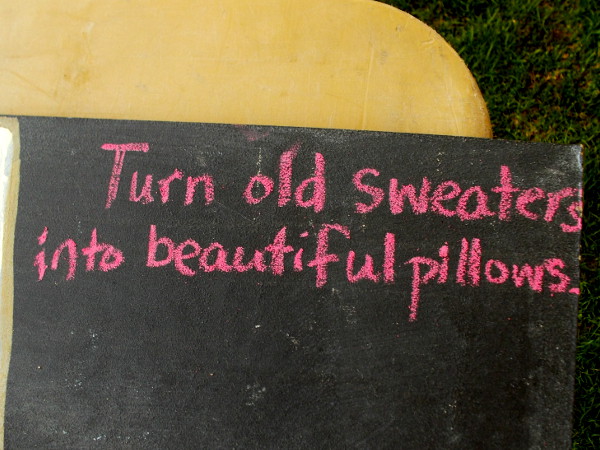 Turn old sweaters
into beautiful pillows.